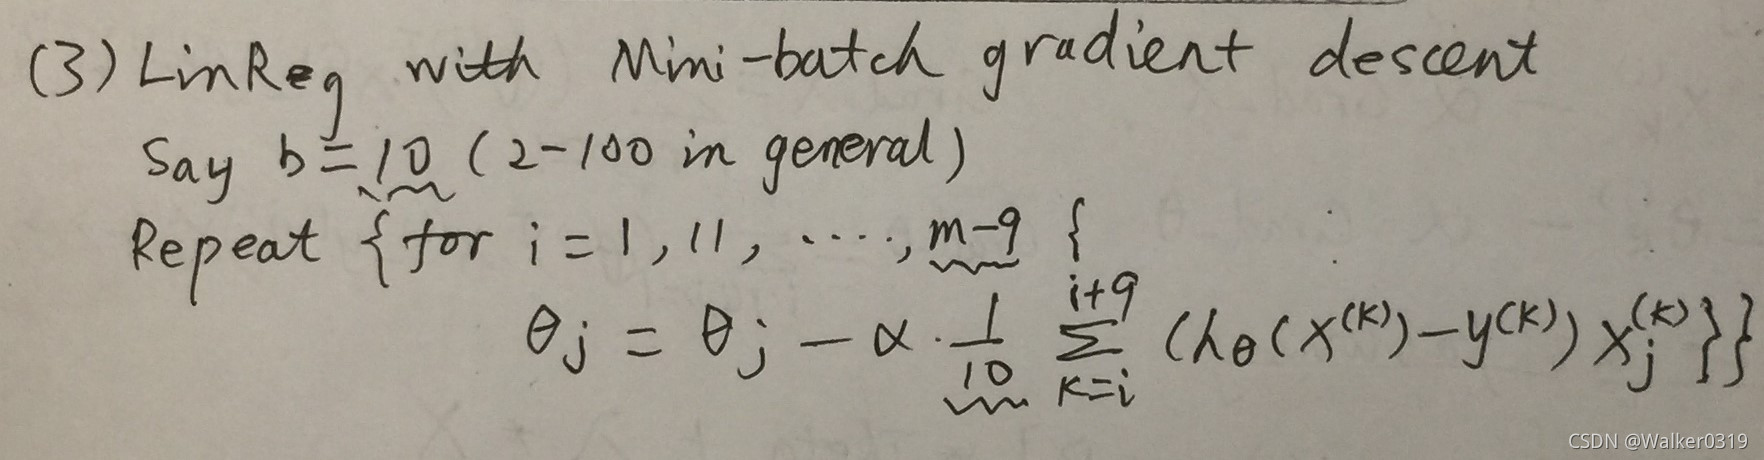 (3) LinReg with Mini-batch gradient descent
Say b = 10 (2-100 in general)
Repeat { for i = 1, 11, ....., m-9 {
θj = θj - α · 1/10 ∑_{k=i}^{i+9} (hθ(x^(k)) - y^(k)) xj^(k) }}
CSDN @Walker0319